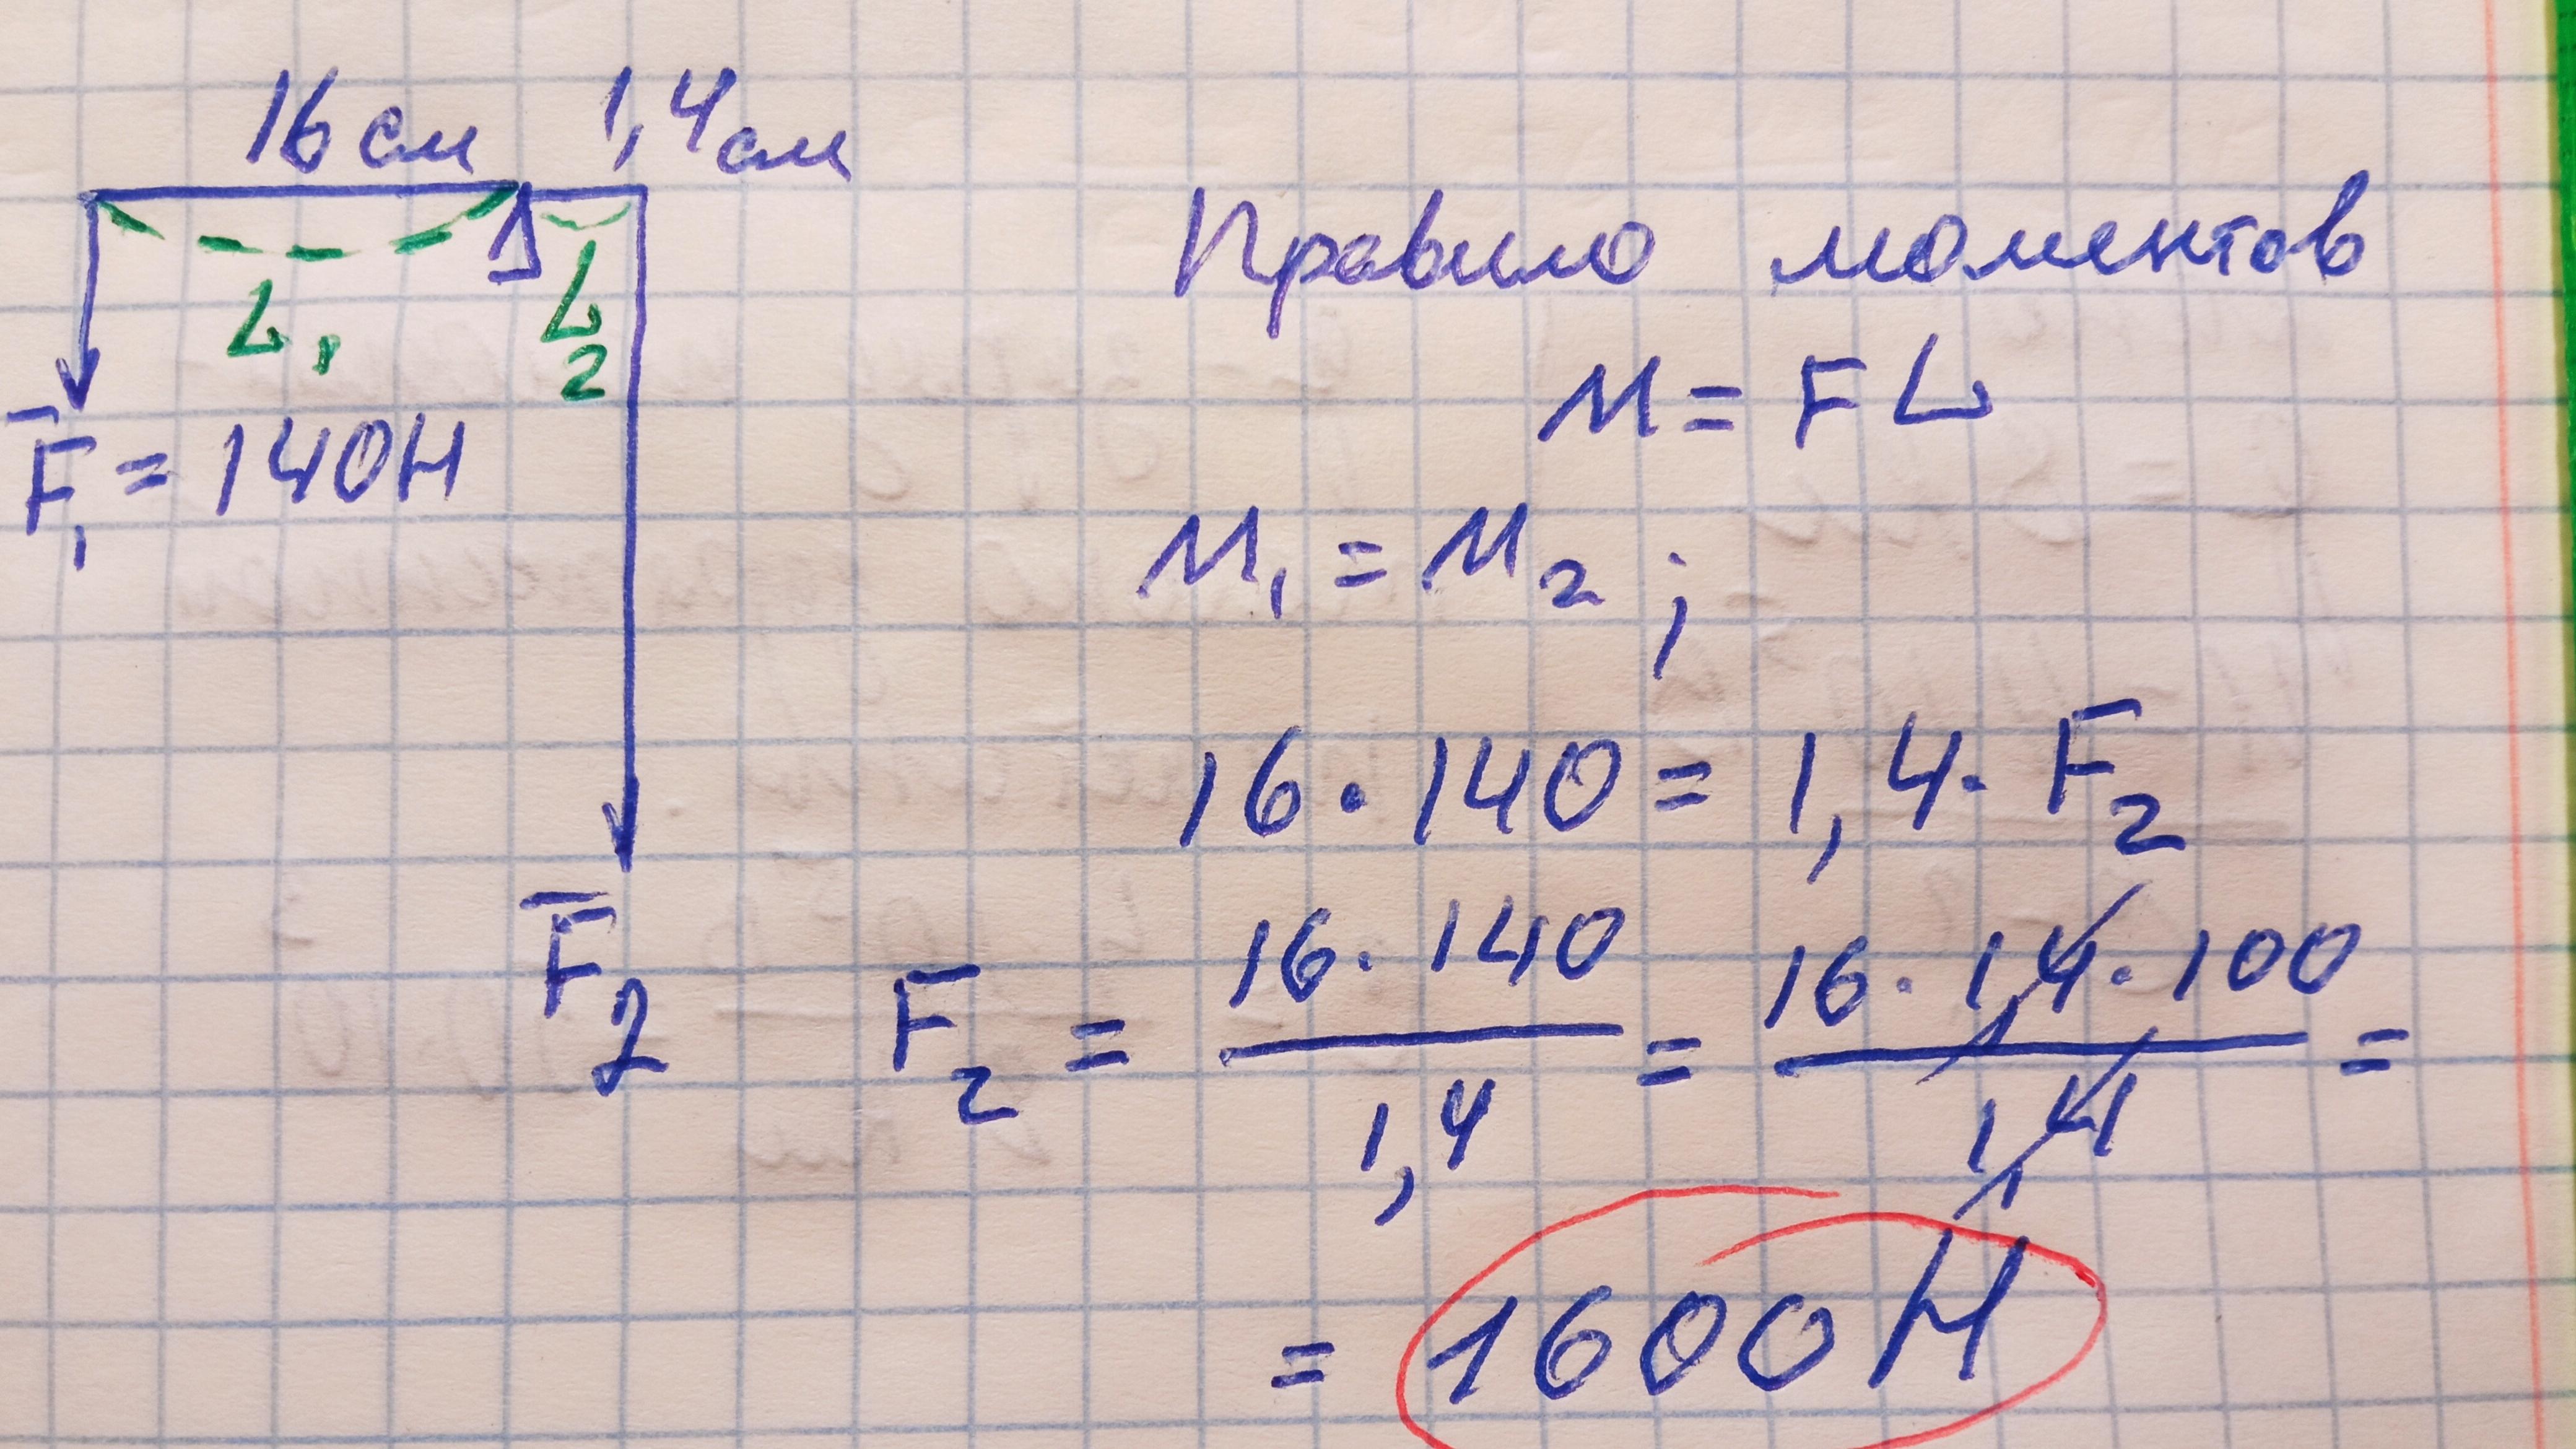 16 см 1,4 см
L₁ L₂
F̄₁ = 140Н
F̄₂
Правило моментов
M = FL
M₁ = M₂ ;
16 · 140 = 1,4 · F₂
F₂ = 16 · 140 / 1,4 = 16 · 1,4 · 100 / 1,4 =
= 1600 Н